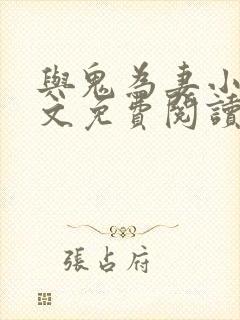 與鬼為妻小
文免費閱讀
張占府